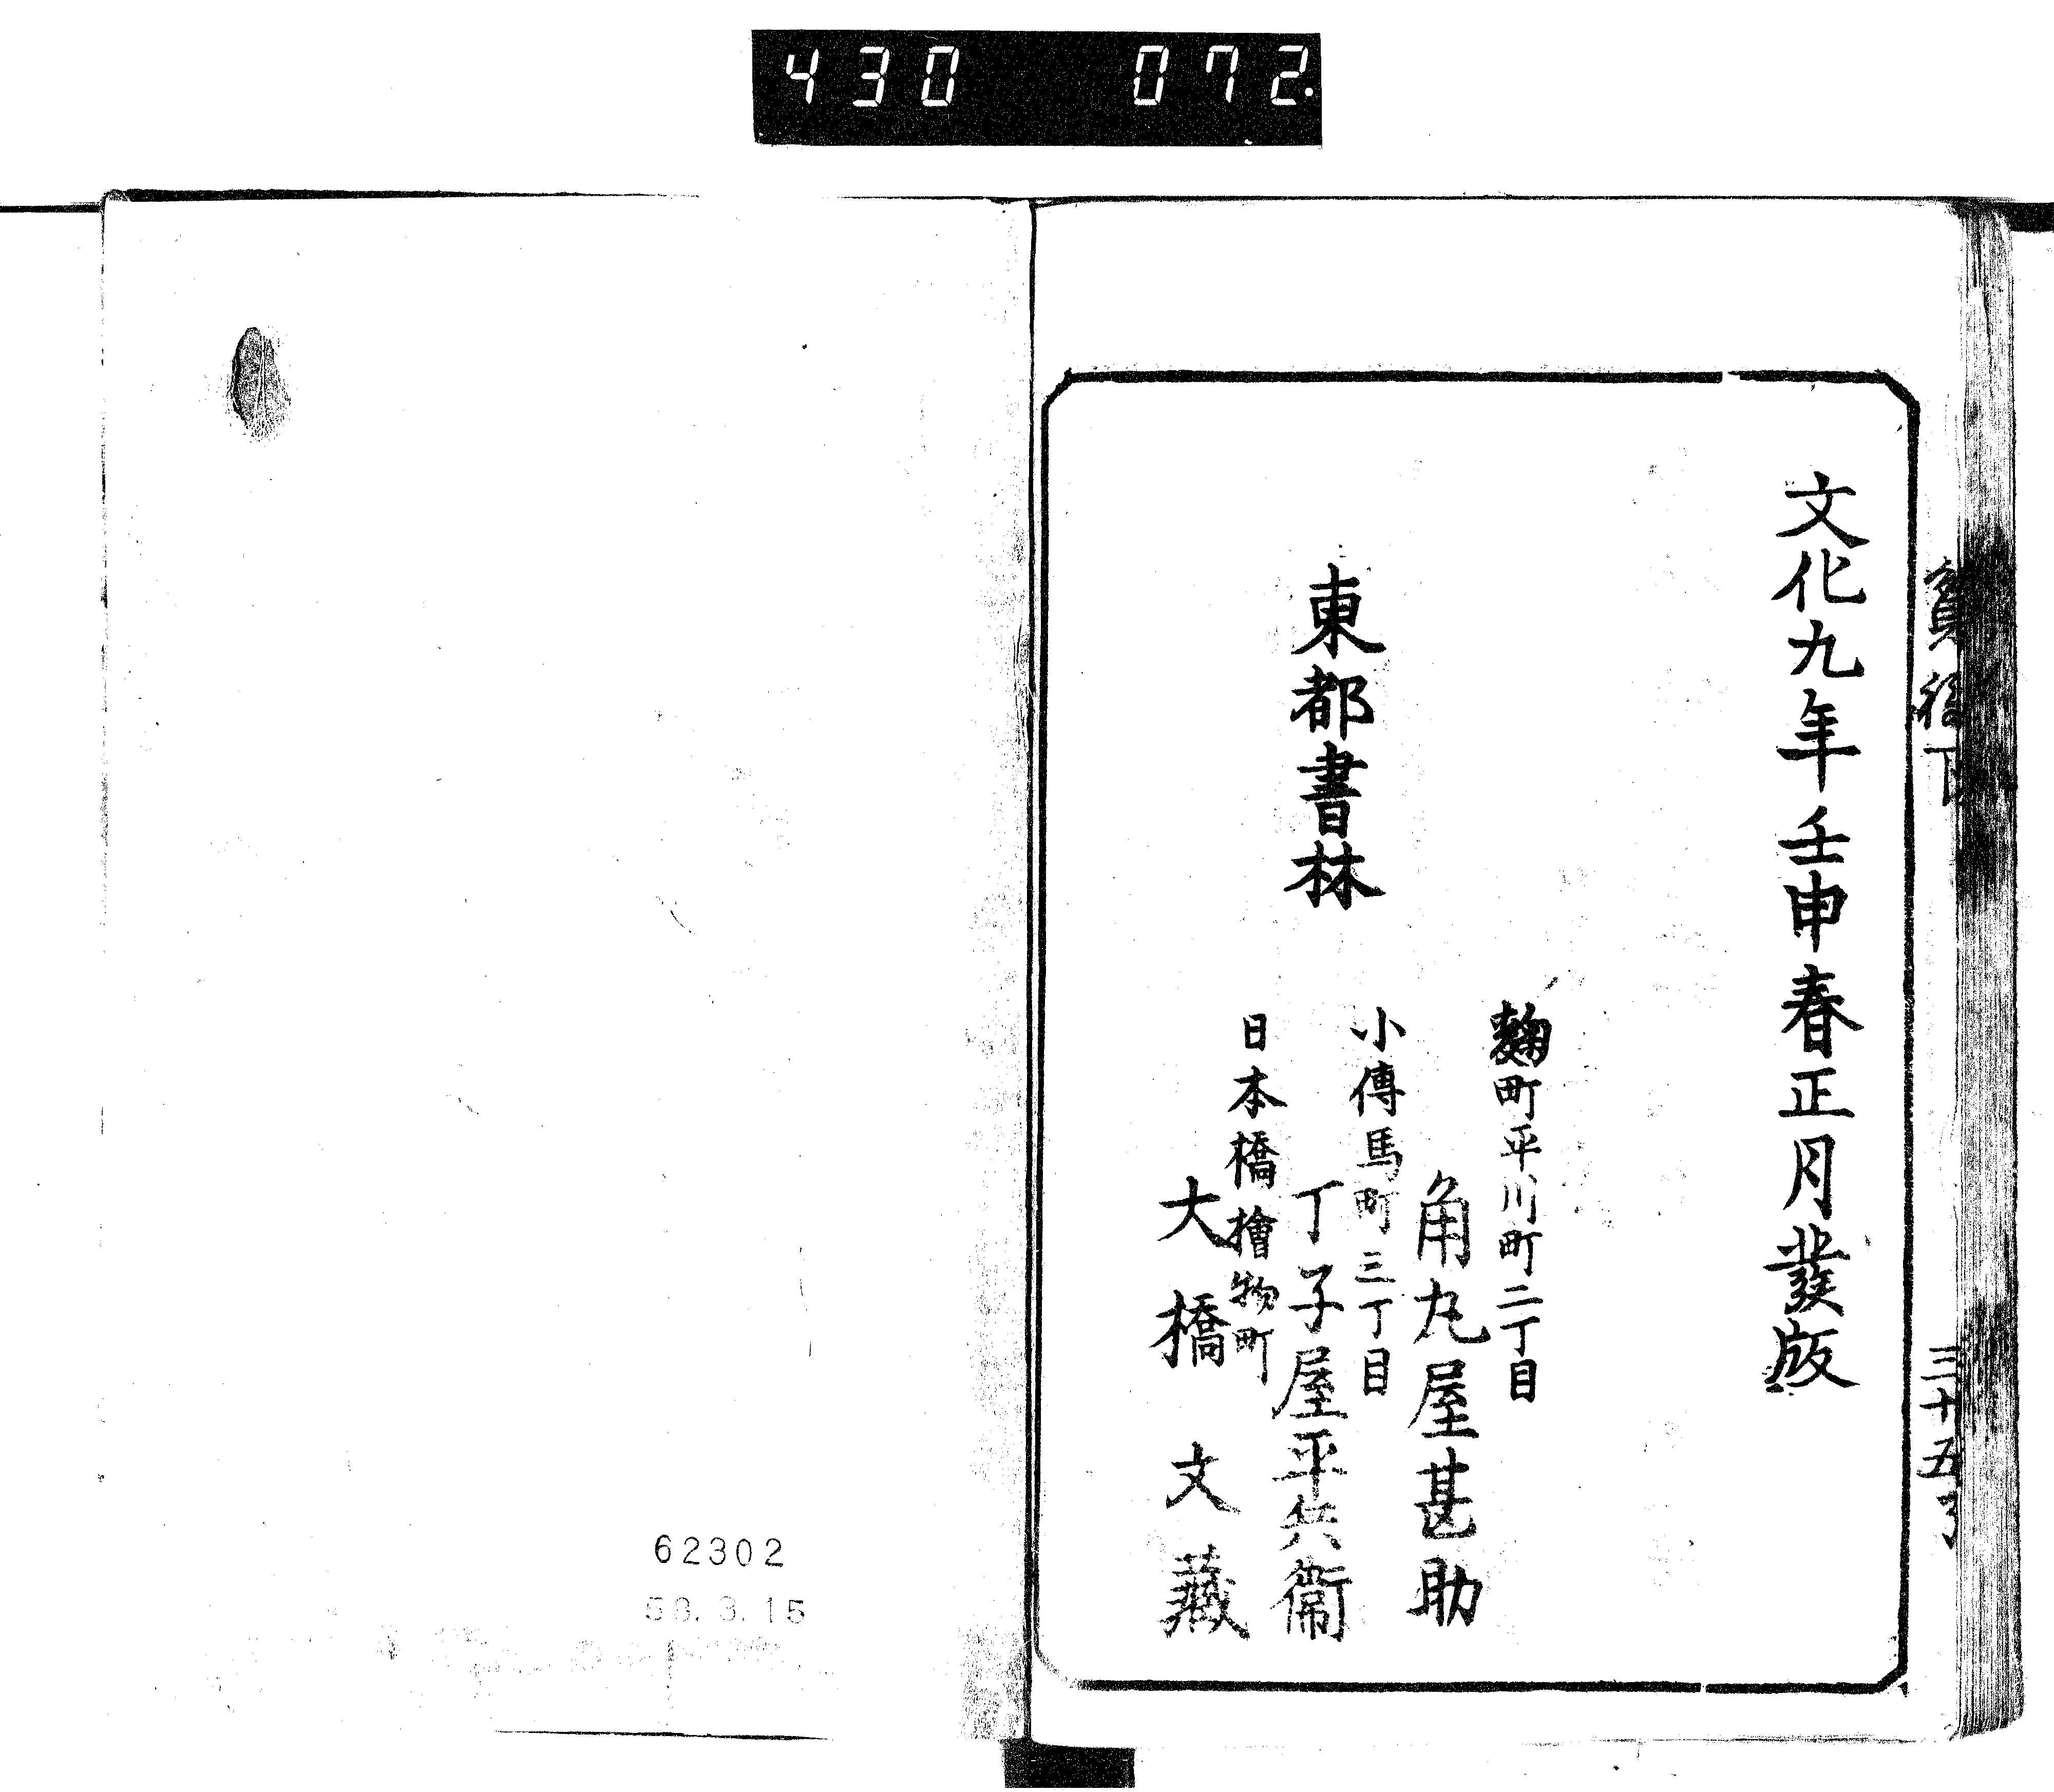 430 072.
文化九年壬申春正月發版
東都書林
麴町平川町二丁目
角丸屋甚助
小傳馬町三丁目
丁子屋平兵衞
日本橋檜物町
大橋文藏
三十五
62302
58.3.15